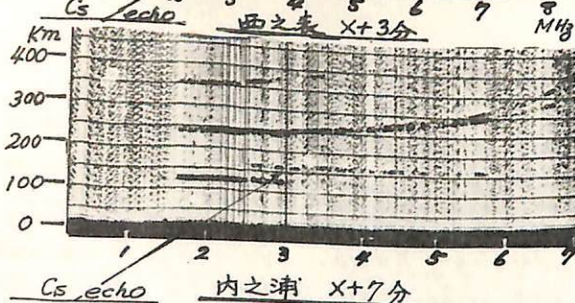 4 5 6 7 8
Cs echo 西之表 X+3分 MHz
Km
400
300
200
100
0
1 2 3 4 5 6 7
Cs echo 内之浦 X+7分